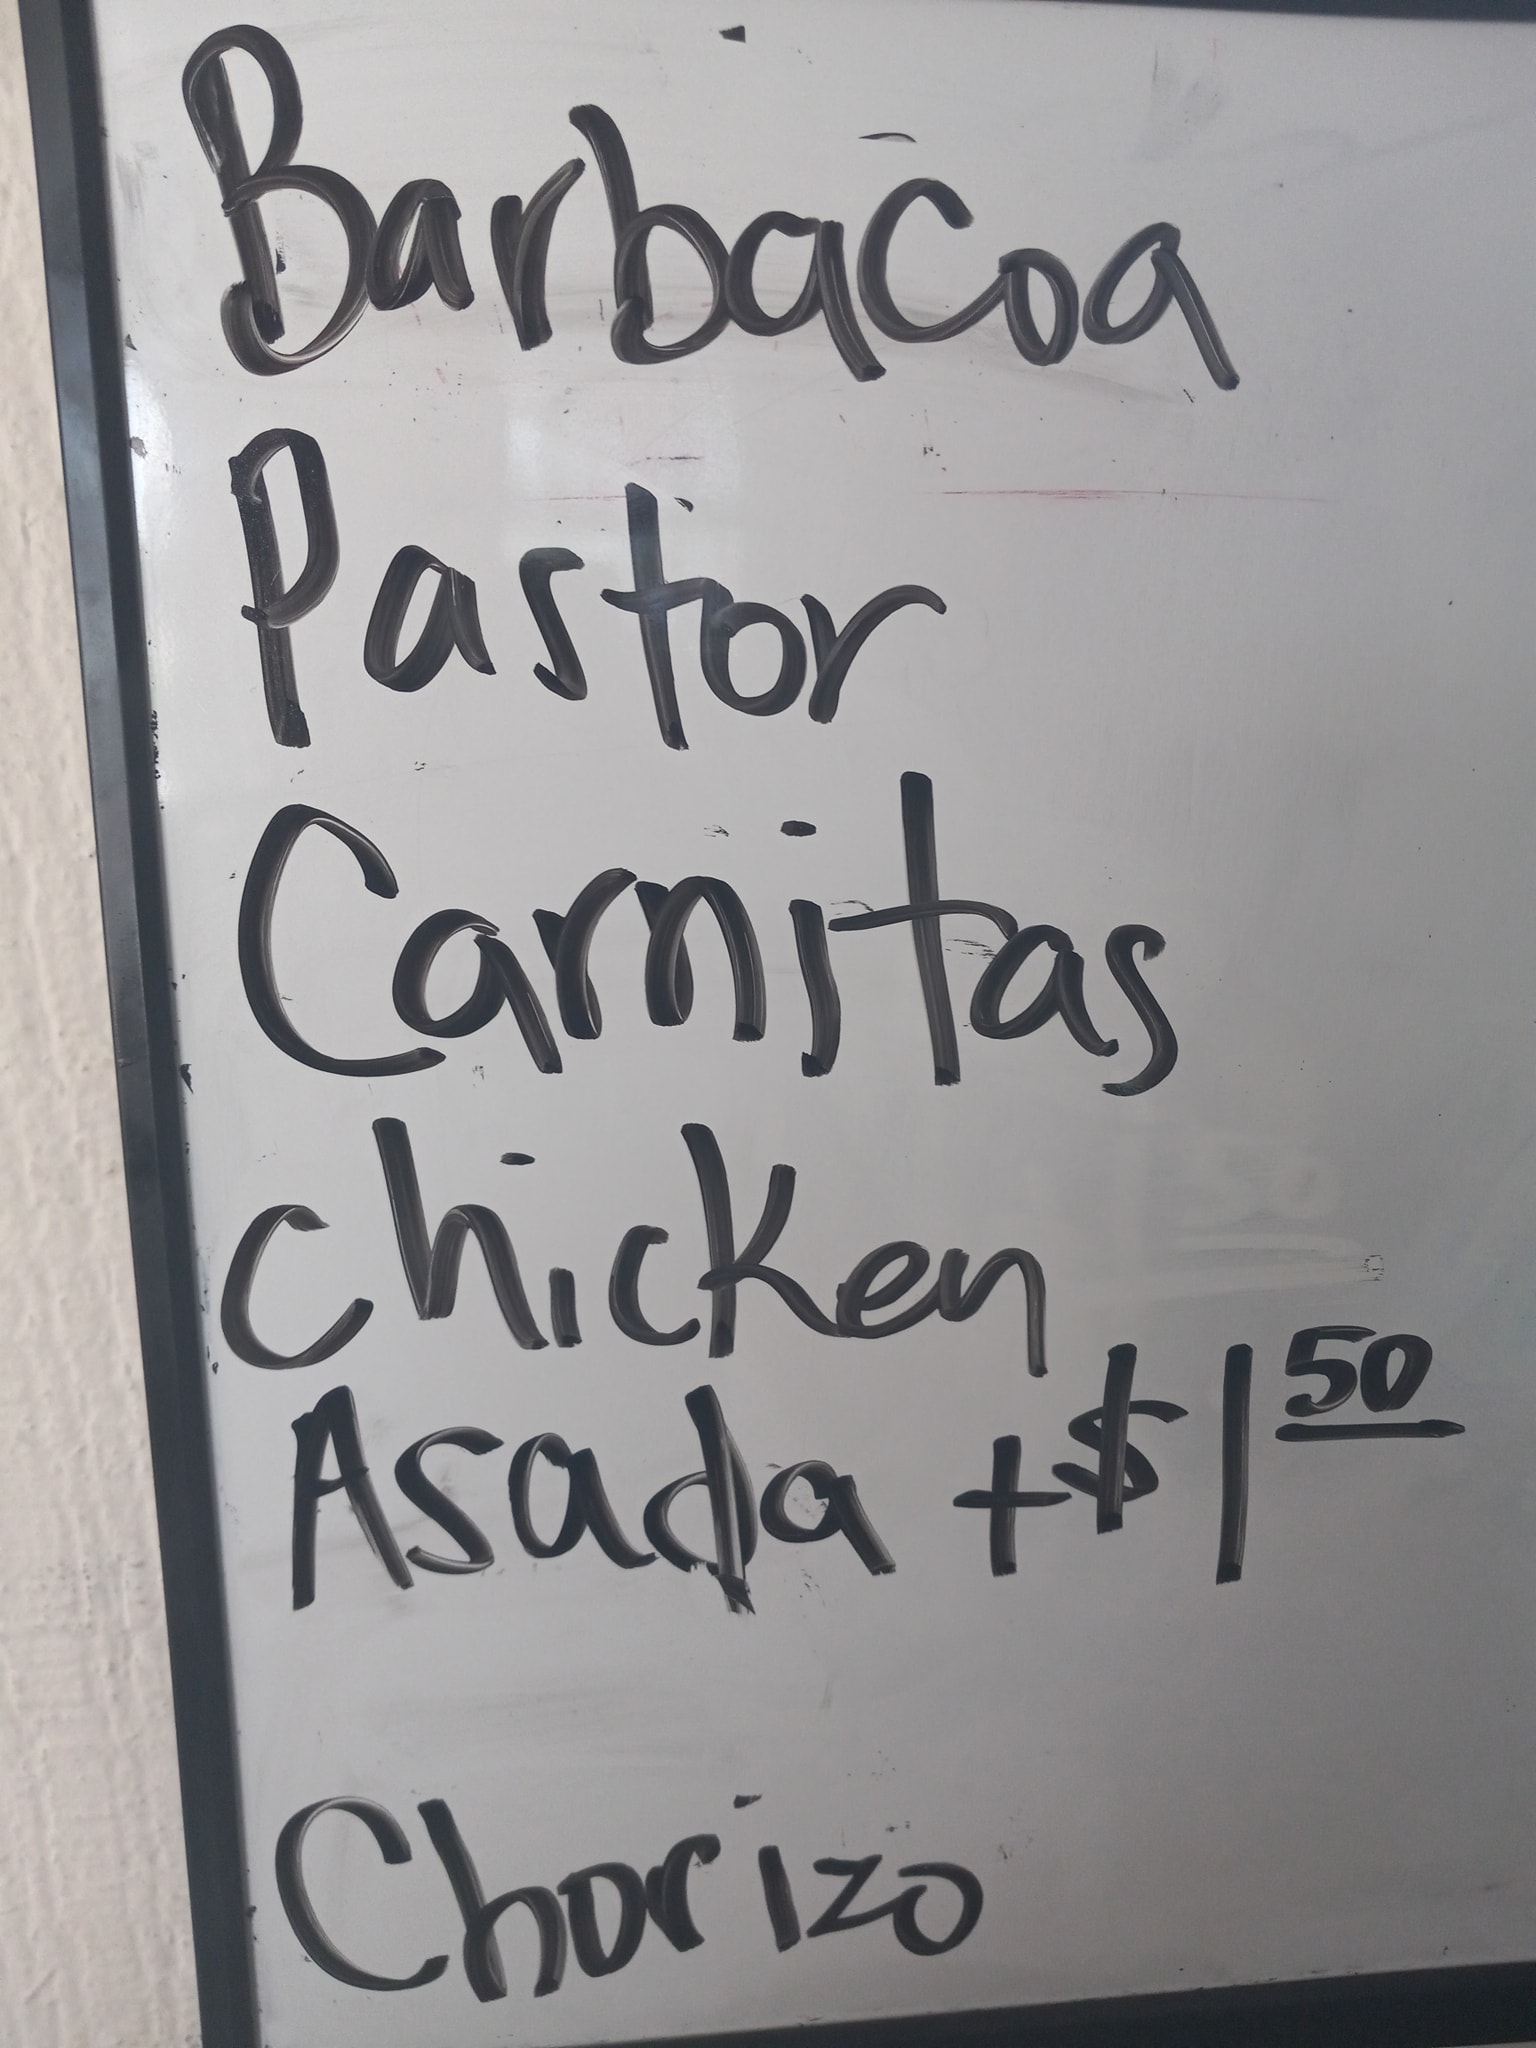 Barbacoa
Pastor
Carnitas
chicken
Asada +$1 50
Chorizo